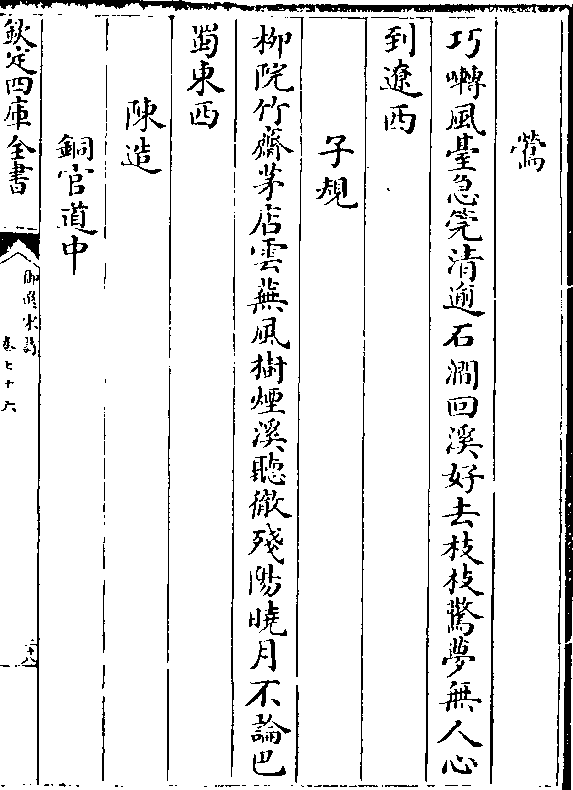 鶯
巧囀風臺急筦清逾石澗回溪好去枝枝驚夢無人心
到遼西
子規
柳院竹齋茅店雲蕪風樹煙溪聽徹殘陽曉月不論巴
蜀東西
陳造
銅官道中
欽定四庫全書
卷七十六